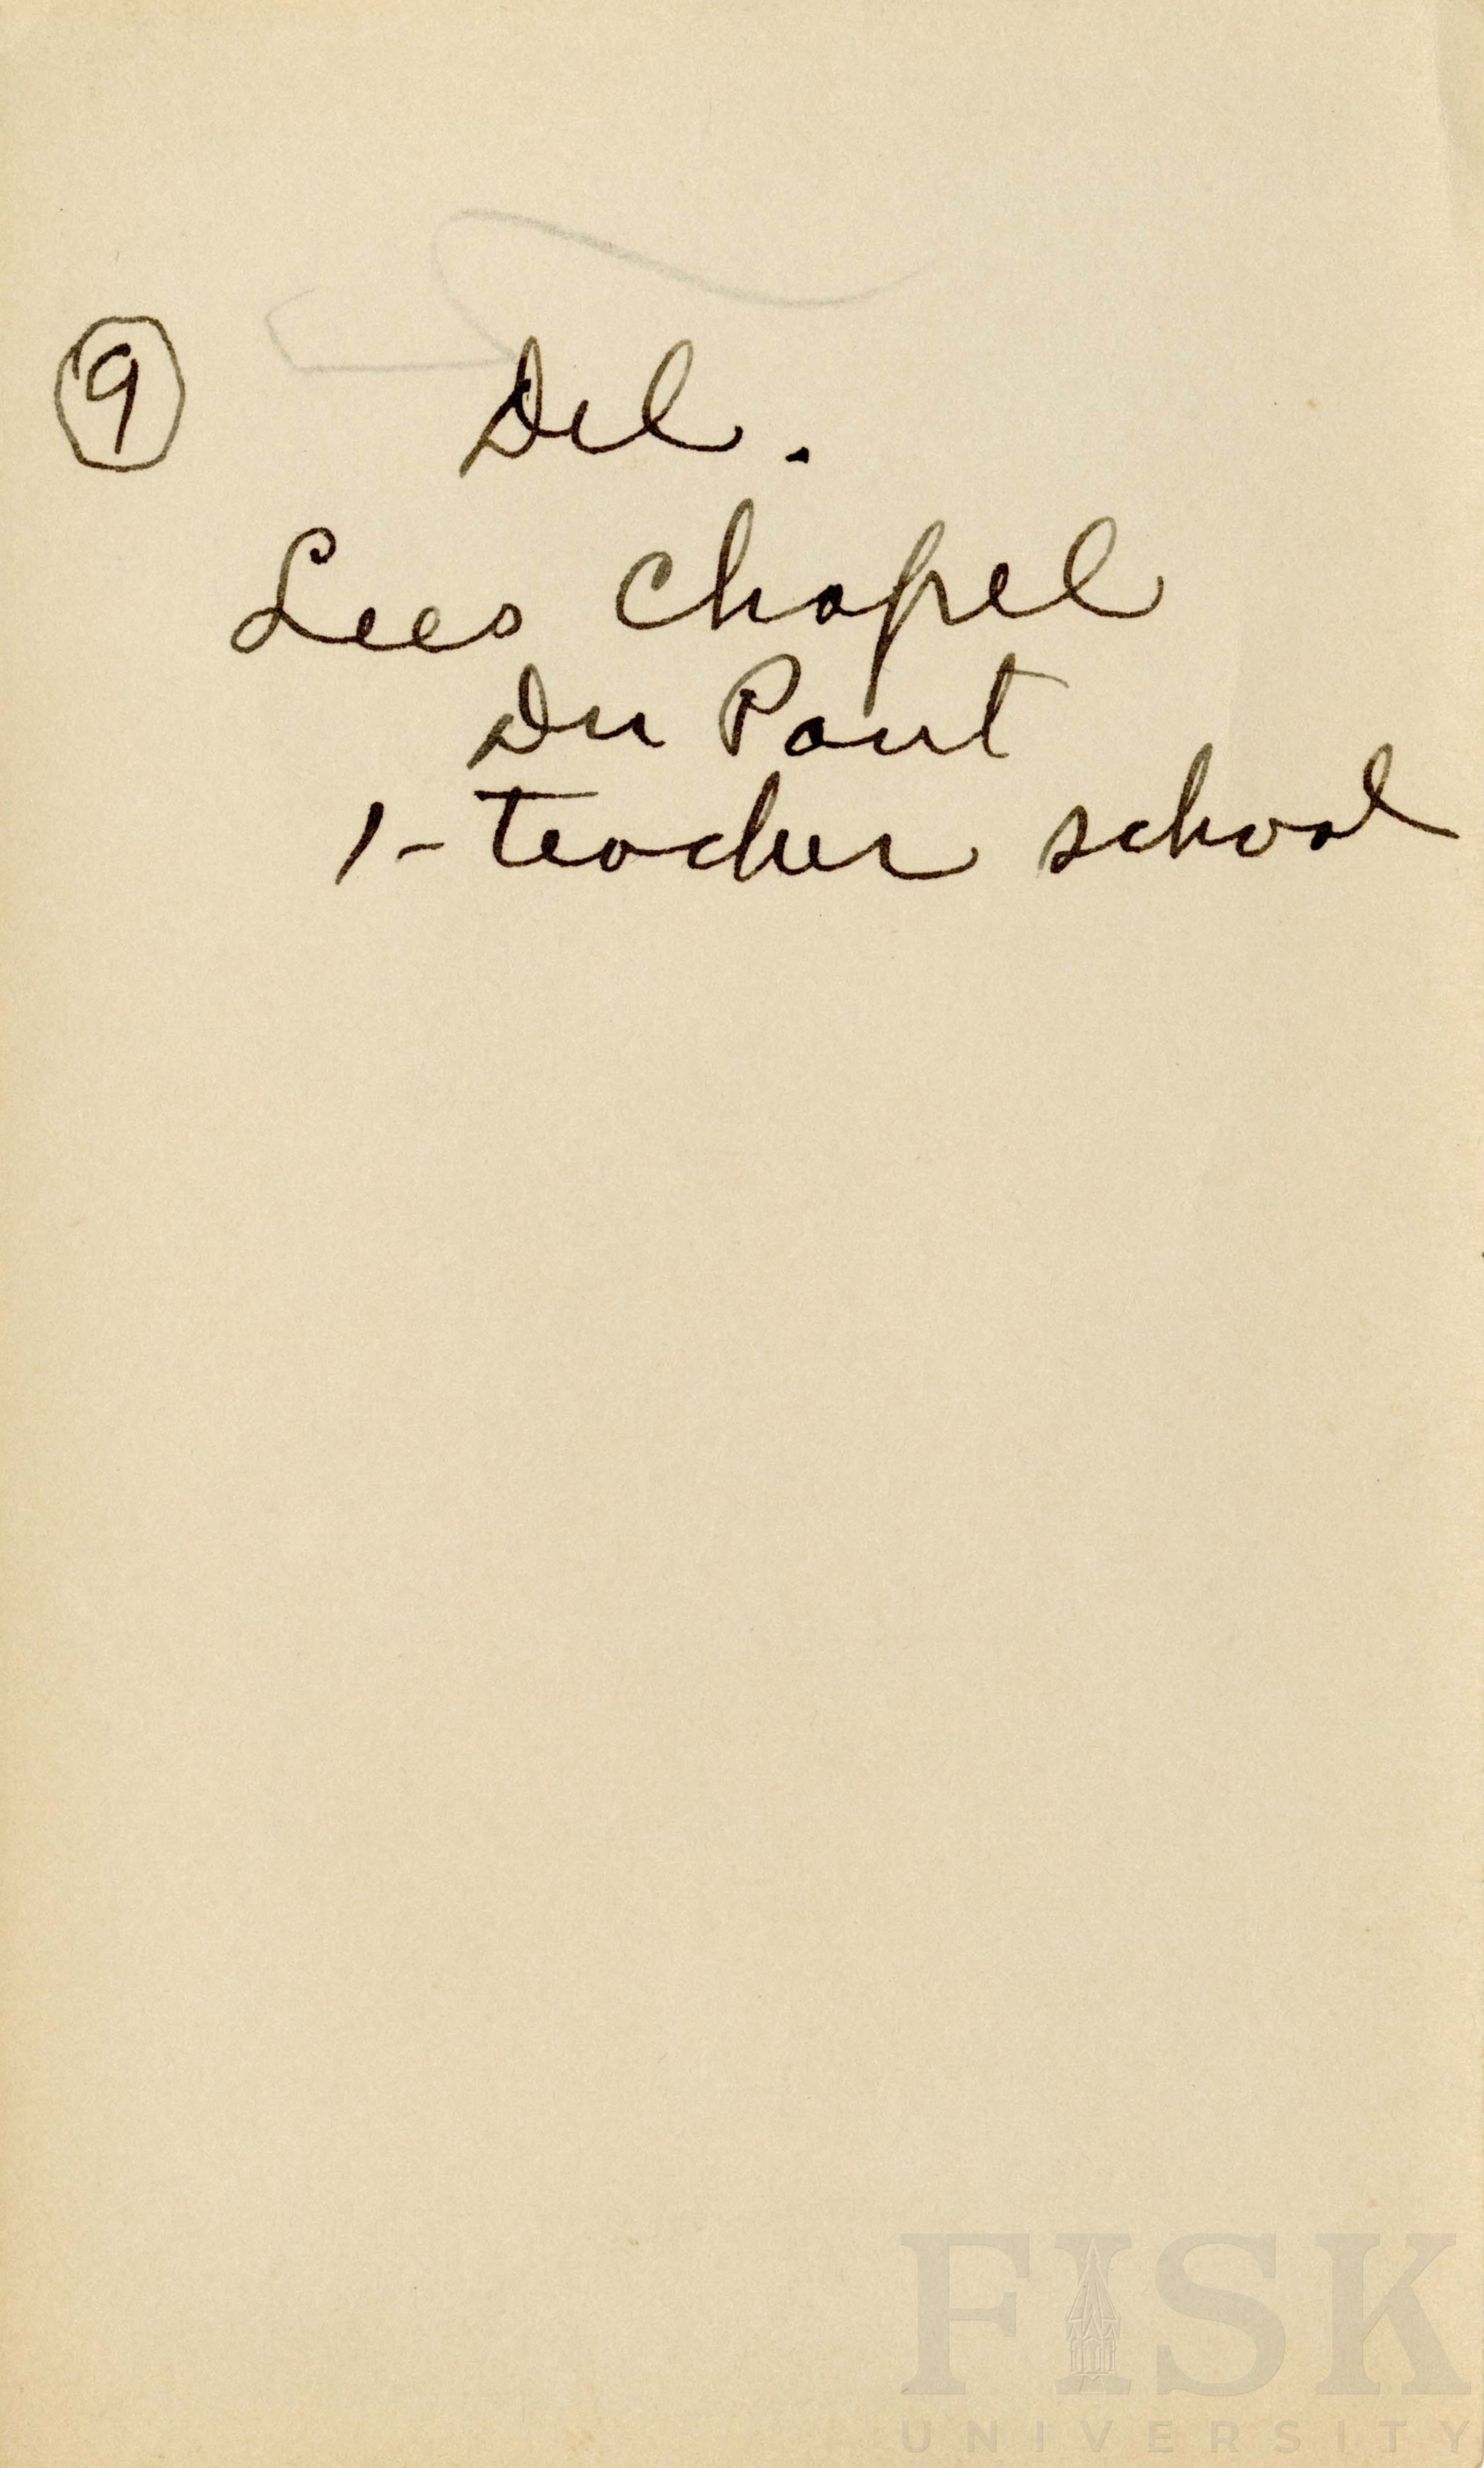 9 Del.
Lees Chapel
Du Pont
1-teacher school
FISK
UNIVERSITY